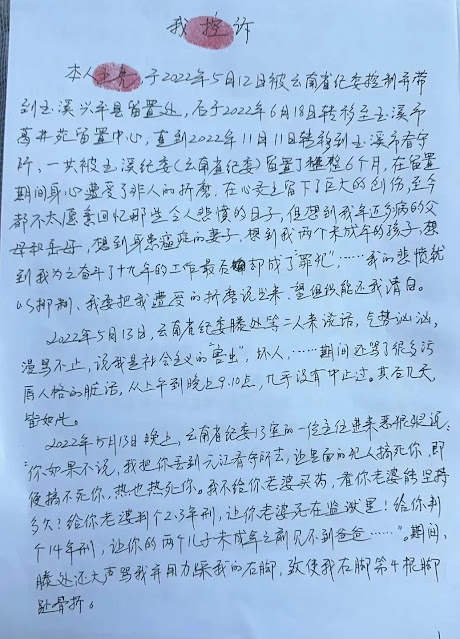 我控诉
本人王亮,于2022年5月12日被云南省纪委控制并带
到玉溪兴平县留置处,后于2022年6月18日转移至玉溪市
葛井苑留置中心,直到2022年11月11日转移到玉溪市看守
所,一共被玉溪纪委(云南省纪委)留置了整整6个月,在留置
期间身心遭受了非人的折磨,在心灵上留下了巨大的创伤,至今
都不太愿意回忆那些令人悲愤的日子,但想到我年近多病的父
母和岳母,想到身患癌症的妻子,想到我两个未成年的孩子,想
到我为之奋斗了十九年的工作最后却成了"罪犯",……我的悲愤就
难以抑制,我要把我遭受的折磨说出来,望组织能还我清白。
2022年5月13日,云南省纪委滕处等二人来谈话,气势汹汹,
漫骂不止,说我是社会主义的"害虫",坏人,……期间还骂了很多污
辱人格的脏话,从上午到晚上9.10点,几乎没有中止过。其后几天,
皆如此。
2022年5月13日晚上,云南省纪委13室的一位主任进来恶狠狠说:
"你如果不说,我把你丢到元江看守所去,让里面的犯人搞死你,即
便搞不死你,热也热死你。我不给你老婆买药,看你老婆能坚持
多久!给你老婆判个2.3年刑,让你老婆死在监狱里!给你判
个14年刑,让你的两个儿子未成年之前见不到爸爸……"。期间,
滕处还大声骂我并用力踩我的右脚,致使我右脚第4根脚
趾骨折。
1